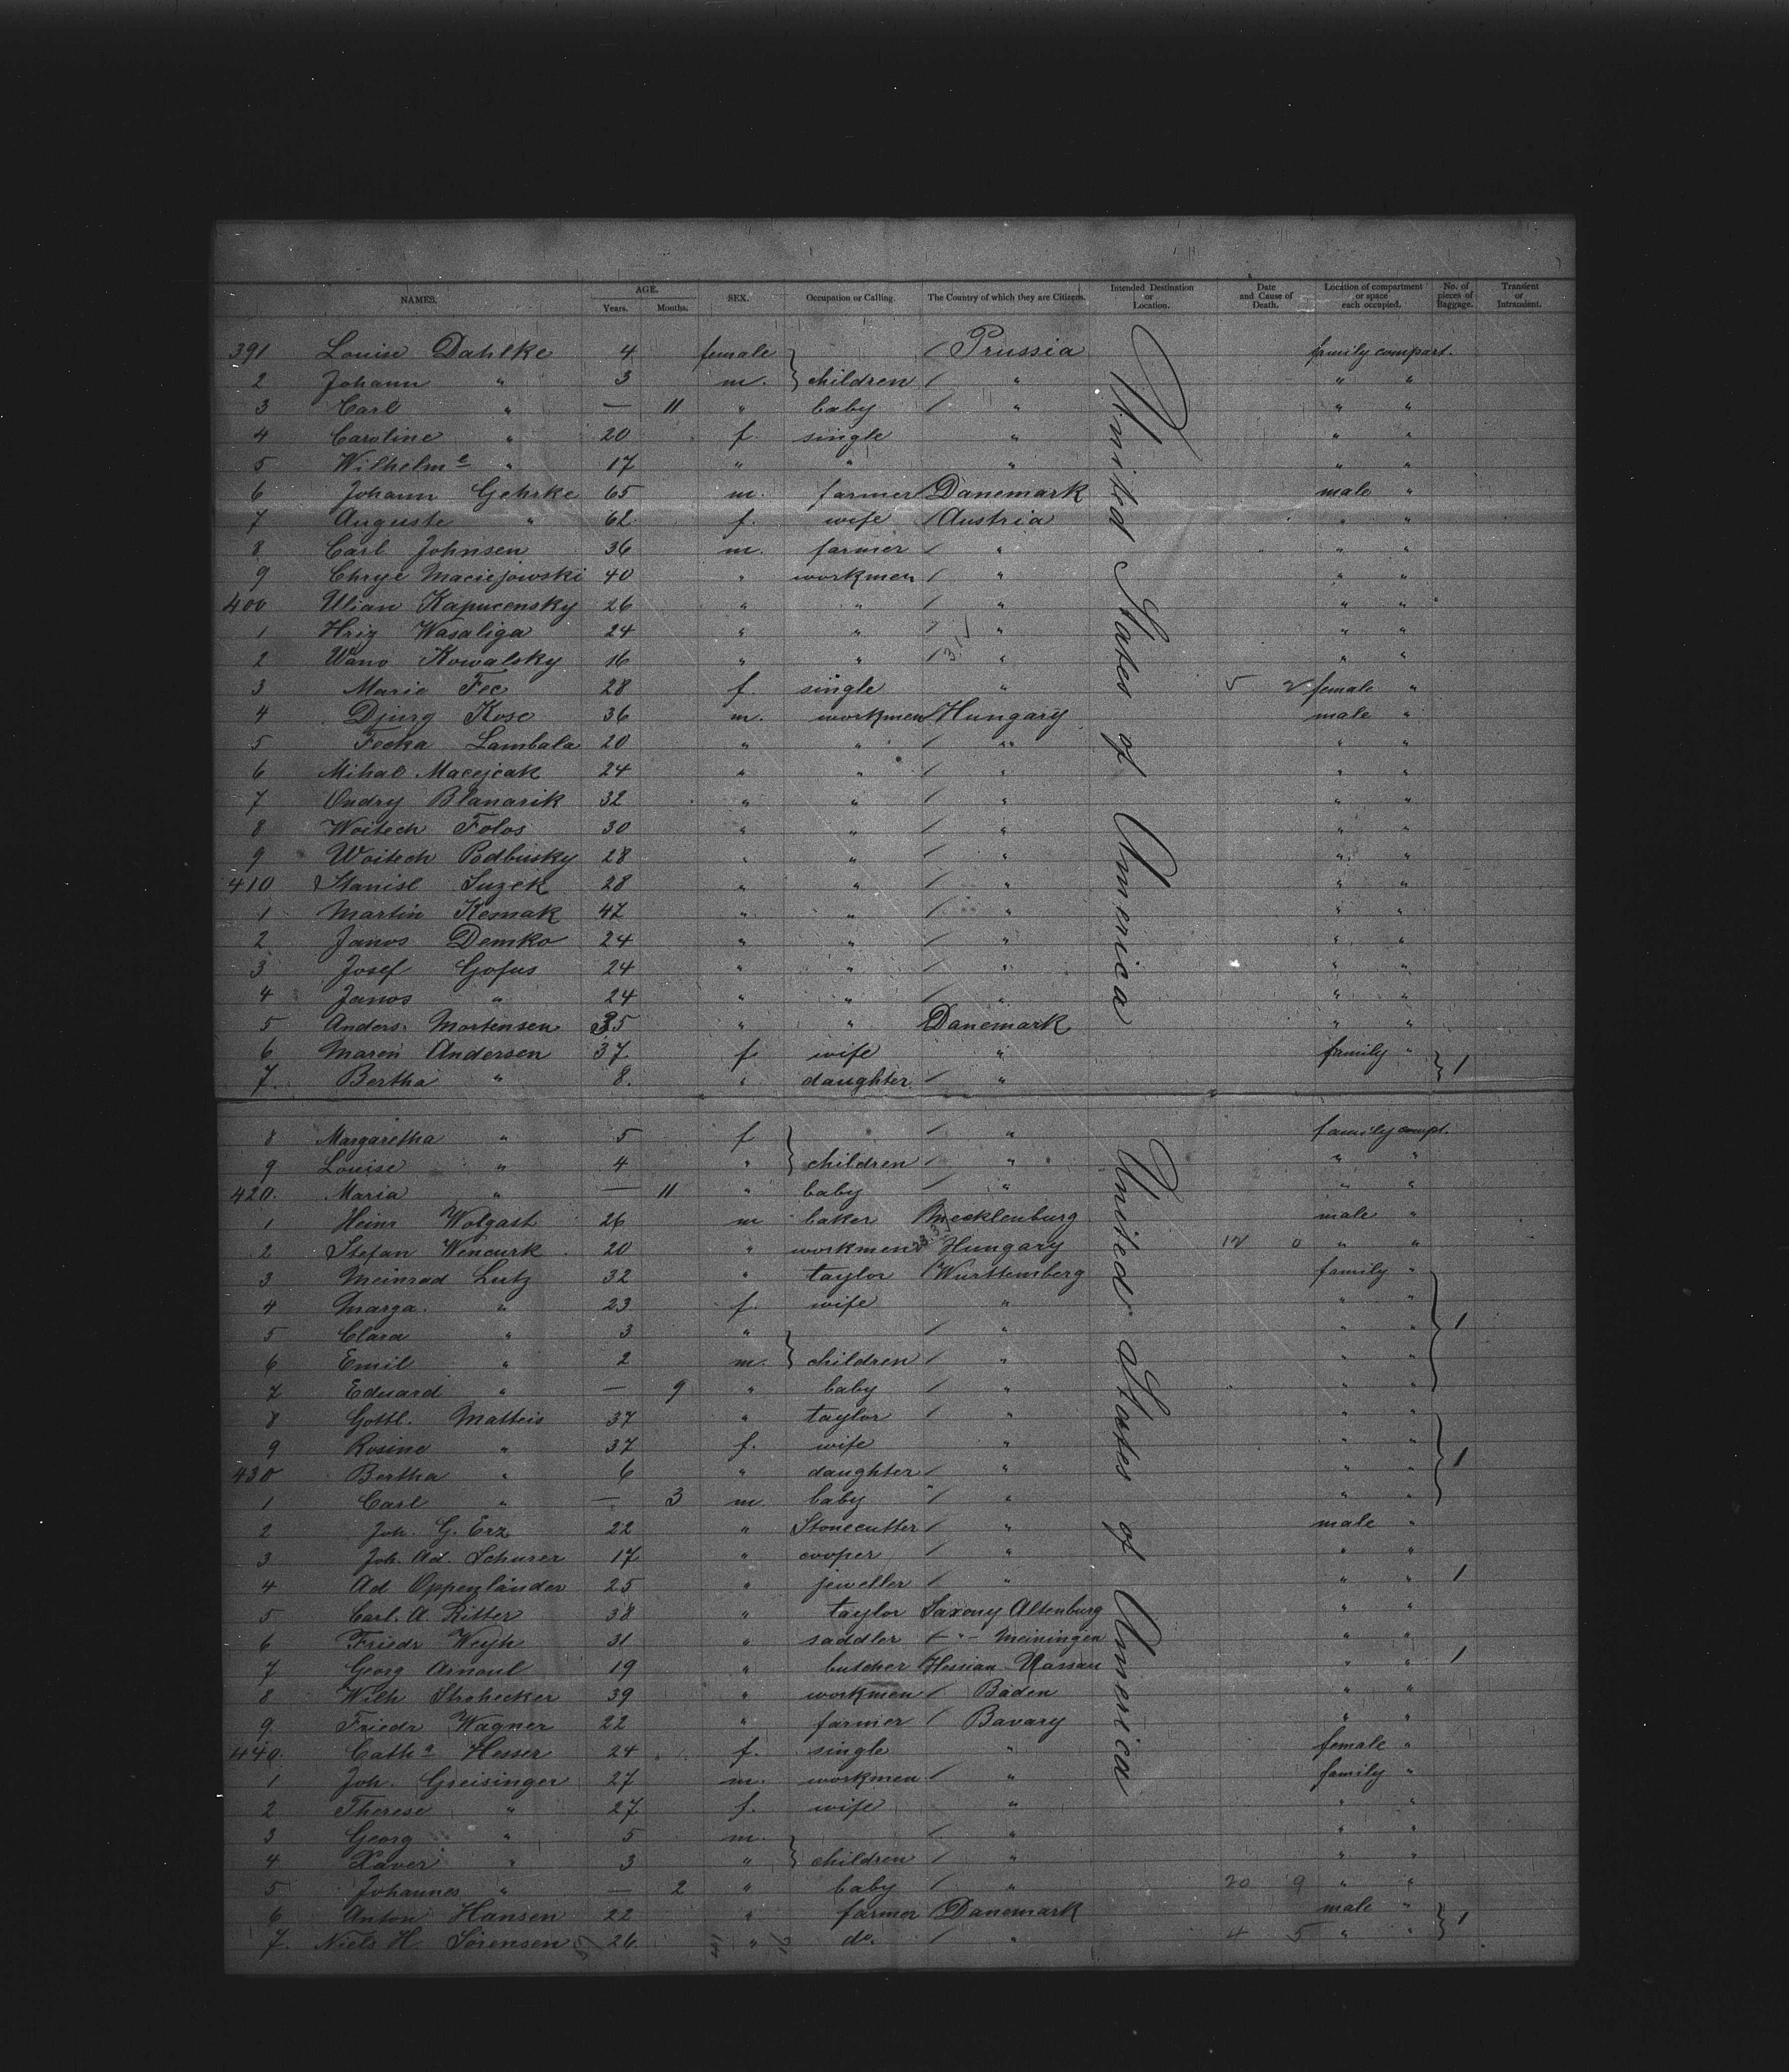 NAMES. AGE. Years. Months. SEX. Occupation or Calling. The Country of which they are Citizens. Intended Destination or Location. Date and Cause of Death. Location of compartment or space each occupied. No. of pieces of Baggage. Transient or Intransient.
391 Louise Dahlke 4 female Prussia family compart.
2 Johann " 3 m. } children " " "
3 Carl " — 11 " baby " " "
4 Caroline " 20 f. single " " "
5 Wilhelme " 17 " " " " "
6 Johann Gehrke 65 m. farmer Danemark male "
7 Auguste " 62 f. wife Austria " "
8 Carl Johnsen 36 m. farmer " " "
9 Chrye Maciejowski 40 " workmen " " "
400 Ulian Kapucensky 26 " " " " "
1 Hriz Wasaliga 24 " " " " "
2 Wano Kowalsky 16 " " " " "
3 Marie Fec 28 f. single " 5 2 female "
4 Djurg Kose 36 m. workmen Hungary male "
5 Fecka Lambala 20 " " " " "
6 Mihal Macejcak 24 " " " " "
7 Ondry Blanarik 32 " " " " "
8 Woitech Folos 30 " " " " "
9 Woitech Podbusky 28 " " " " "
410 Stanisl Suzek 28 " " " " "
1 Martin Kemak 47 " " " " "
2 Janos Demko 24 " " " " "
3 Josef Gofus 24 " " " " "
4 Janos " 24 " " " " "
5 Anders. Mortensen 35 " " Danemark " "
6 Maren Andersen 37 f wife " family "
7. Bertha " 8. " daughter " } 1
United States of America
8 Margaretha " 5 f " family compt.
9 Louise " 4 " } children " " "
420. Maria " — 11 " baby " " "
1 Heinr Wolgast 26 m baker Mecklenburg male "
2 Stefan Wencurk 20 " workmen Hungary 12 0 " "
3 Meinrad Lutz 32 " taylor Wurttemberg family "
4 Marga. " 23 f. wife " " "
5 Clara " 3 " " " " } 1
6 Emil " 2 m. } children " " "
7 Eduard " — 9 " baby " " "
8 Gottl. Matteis 37 " taylor " " "
9 Rosine " 37 f. wife " " "
430 Bertha " 6 " daughter " " " } 1
1 Carl " — 3 m. baby " " "
2 Joh. G. Erz 22 " Stonecutter " male "
3 Joh. Ad. Schurer 17 " cooper " " "
4 Ad Oppenländer 25 " jeweller " " " 1
5 Carl. A. Ritter 38 " taylor Saxony Altenburg " "
6 Friedr Weyh 31 " saddler — " — Meiningen " "
7 Georg Arnoul 19 " butcher Hessian Nassau " " 1
8 Wilh Strohecker 39 " workmen Baden " "
9. Friedr Wagner 22 " farmer Bavary " "
440. Catha Hesser 24 f. single " female "
1 Joh. Greisinger 27 m. workmen " family "
2 Therese " 27 f. wife " " "
3 Georg " 5 m. " " "
4 Xaver " 3 " } children " " "
5 Johannes " — 2 " baby " 20 9 " "
6 Anton Hansen 22 " farmer Danemark male "
7. Niels H. Sörensen 26. " do. " 4 5 " " } 1
United States of America